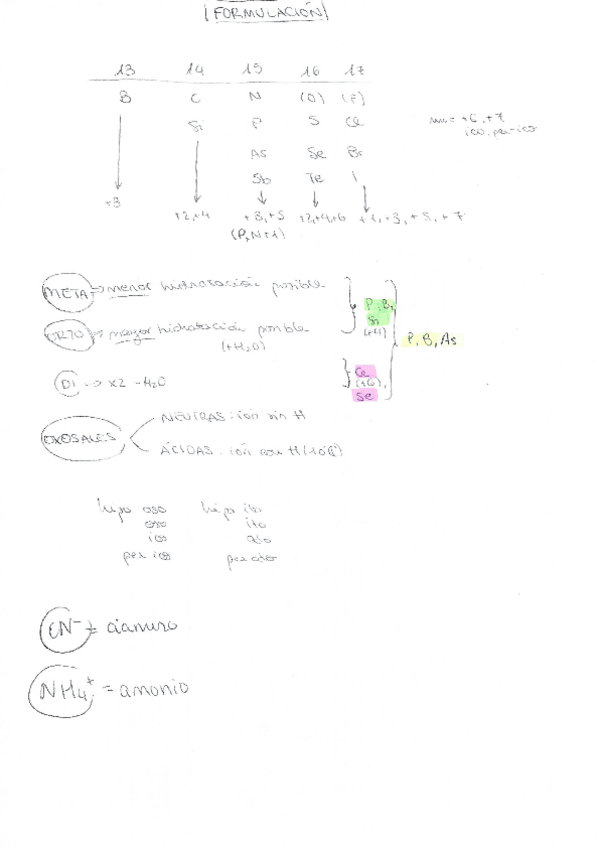 FORMULACIÓN
13 14 15 16 17
B C N (O) (F)
Si P S Cl
As Se Br
Sb Te I
mn = +6, +7
ico, per-ico
+3 +2,+4 +3,+5 +2,+4,+6 +1,+3,+5,+7
(P, N+1)
META → menor hidratación posible
ORTO → mayor hidratación posible
(+H₂O)
P, B,
Si
(+4)
P, B, As
DI → x2 -H₂O
(+6),
Se
OXOSALES
NEUTRAS: ión sin H
ÁCIDAS: ión con H
hipo oso hipo ito
oso ito
ico ato
per ico per ato
CN⁻ = cianuro
NH₄⁺ = amonio